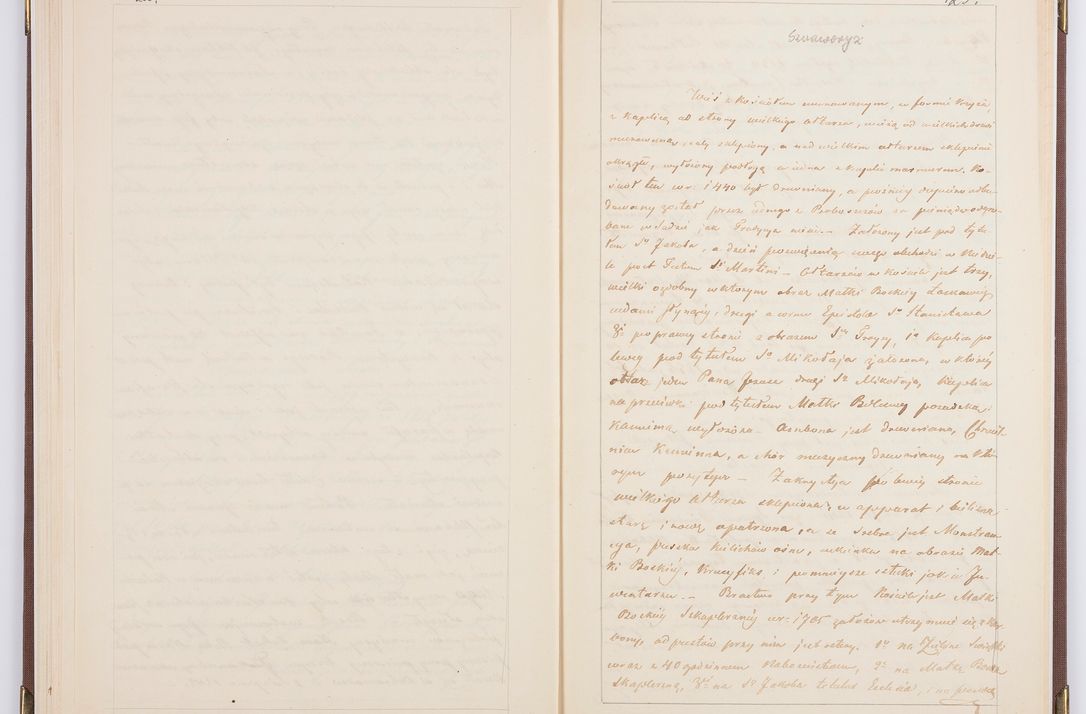 Szaworyż
Wieś z Kościołem murowanym, w formie Krzyża,
z Kaplicą od strony wielkiego Ołtarza, wieżą od wielkich drzwi
murowana cały sklepiony, a nad wielkim ołtarzem sklepienie
okrągłe, wyłożony podłogą marmurem. Ko-
ściół ten w r. 1440 był drewniany, a później odbu-
dowany został przez jednego z Proboszczów za pieniądze
jak Tradycya niesie. – Założony jest pod tytu-
łem Sº Jakóba, a dzień poświęcenia swego obchodzi w Niedzie-
le post Festum Sº Martini – Ołtarzów w Kościele jest trzy,
wielki ozdobny w którym obraz Matki Boskiey Łaskawey
cudami słynący, drugi a cornu Epistolae Sº Stanisława
3i po prawey stronie z obrazem Sey Troycy, 1a Kaplica po
lewey pod tytułem Sº Mikołaja założona, w którey
obraz jeden Pana Jezusa drugi Sº Mikołaja, Kaplica
na przeciwko pod tytułem Matki Bolesney posadzka
kamienna wyłożona – Ambona jest drewniana, Chrzciel-
nica Kamienna, a chór muzyczny drewniany na
pozytyw – Zakrystya po lewey stronie
wielkiego Ołtarza sklepiona, w apparat i bieliznę
starą i nową opatrzona, a ze srebra jest Monstran-
cya, puszka kielichów ośm, sukienka na obrazie Mat-
ki Boskiey, Krucyfiks i pomnieysze sztuki jak w In-
wentarzu. – Bractwo przy tym Kościele jest Matki
Boskiey Szkaplerzney w r: 1705 założone utrzymuie się z
odpustów przy nim jest cztery. 1y na Zielone Świątki
wraz z 40 godzinnem Nabożeństwem, 2i na Matkę Boską
Szkaplerzną, 3i na Sº Jakóba titulus Ecclesiae, i na